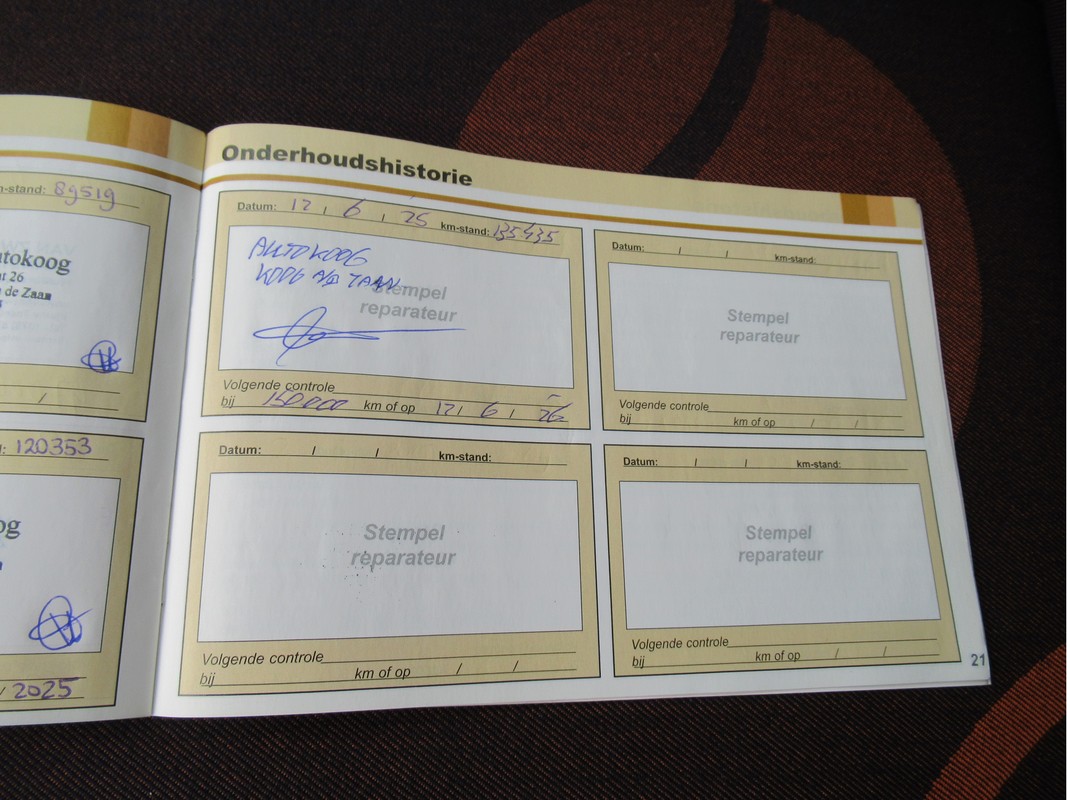 m-stand: 89519
tokoog
at 26
de Zaan
/
120353
og
/ 2025
Onderhoudshistorie
Datum: 12 / 6 / 25 km-stand: 135435
AUTOKOOG
KOOG A/D ZAAN
Stempel
reparateur
Volgende controle
bij 150000 km of op 12 / 6 / 26
Datum: / / km-stand:
Stempel
reparateur
Volgende controle
bij km of op / /
Datum: / / km-stand:
Stempel
reparateur
Volgende controle
bij km of op / /
Datum: / / km-stand:
Stempel
reparateur
Volgende controle
bij km of op / /
21